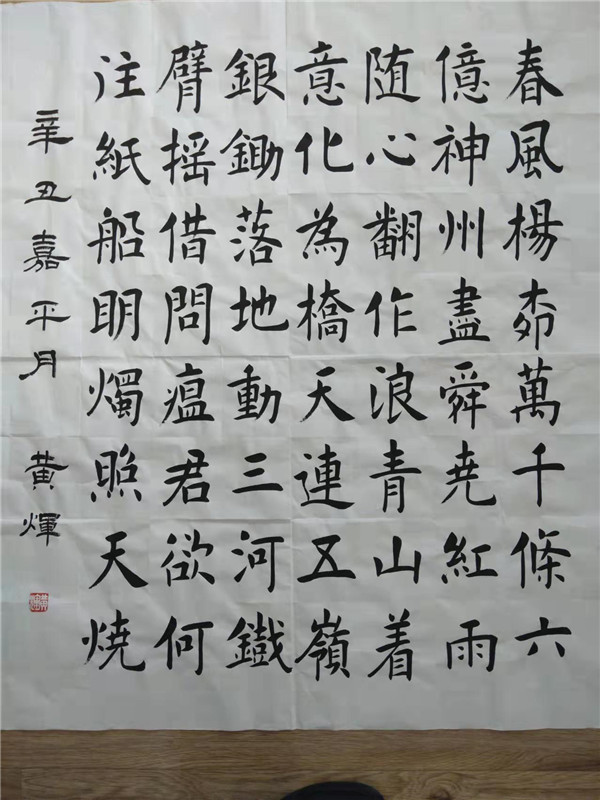 春風楊桺萬千條六
億神州盡舜尭紅雨
随心翻作浪青山着
意化為橋天連五嶺
銀鋤落地動三河鐵
臂摇借問瘟君欲何
注紙船明燭照天焼
辛丑嘉平月 黄煇